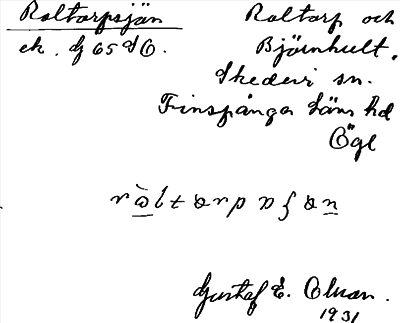 Raltorpsjön
ek. bf 65 SO.
Raltorp och
Björnhult.
Skedevi sn.
Finspånga Läns hd
Ögl
Gustaf E. Olson.
1931